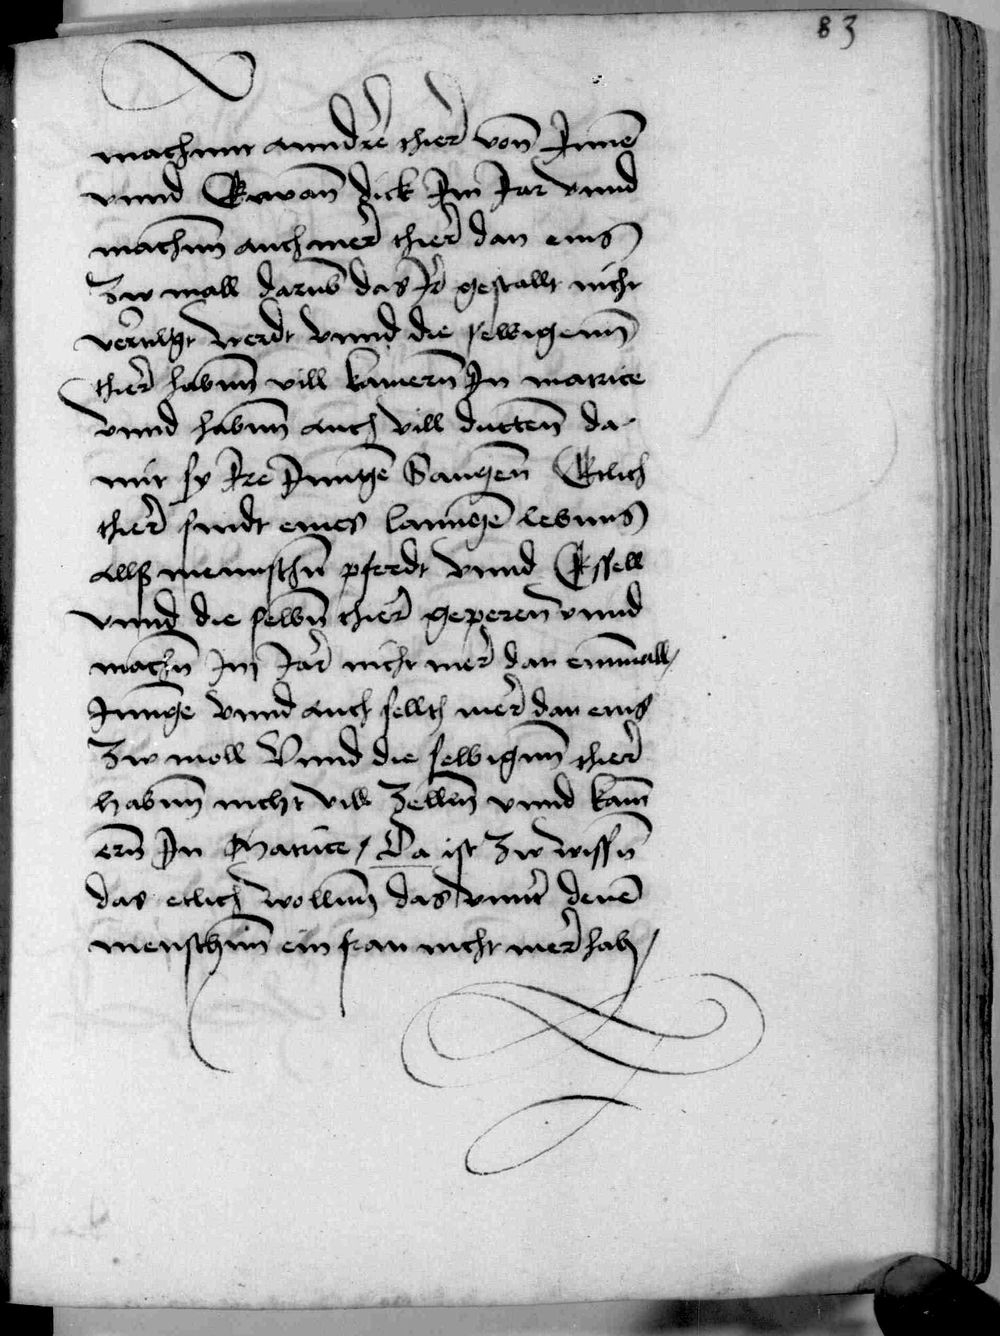 83
machenn anndre thier vonn Jnnē
vnnd Etwan dick Jm Jar vnnd
machenn auch mer thier dan eins
Zw mall darūb das Jr gestallt nicht
vertilgt werdt vnnd die selbigenn
thier habenn vill kamern Jn matrice
vnnd habenn auch vill dutten da
mit sy Jre Junngē Saugen Etlich
thier sindt eines lanngē lebenns
Allß mennschn pferdt vnnd Essell
vnnd die selbn thier geperen vnnd
machn Jm Jar nicht mer dan einmall /
Junnge vnnd auch sellth mer dan eins
Zw moll Vnnd die selbigenn thier
habenn nicht vill Zellenn vnnd kam
ern Jn Matrice / Da ist Zw wissn
das etlich wollenn das vnntr denē
menschenn ein frau nicht mer hab /